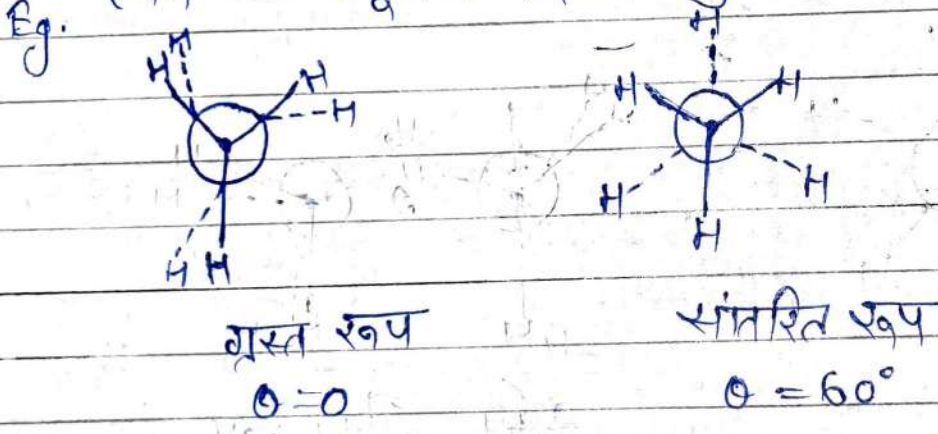 Eg.
H H H H H H
H H H H H H
ग्रस्त रूप सांतरित रूप
θ = 0 θ = 60°